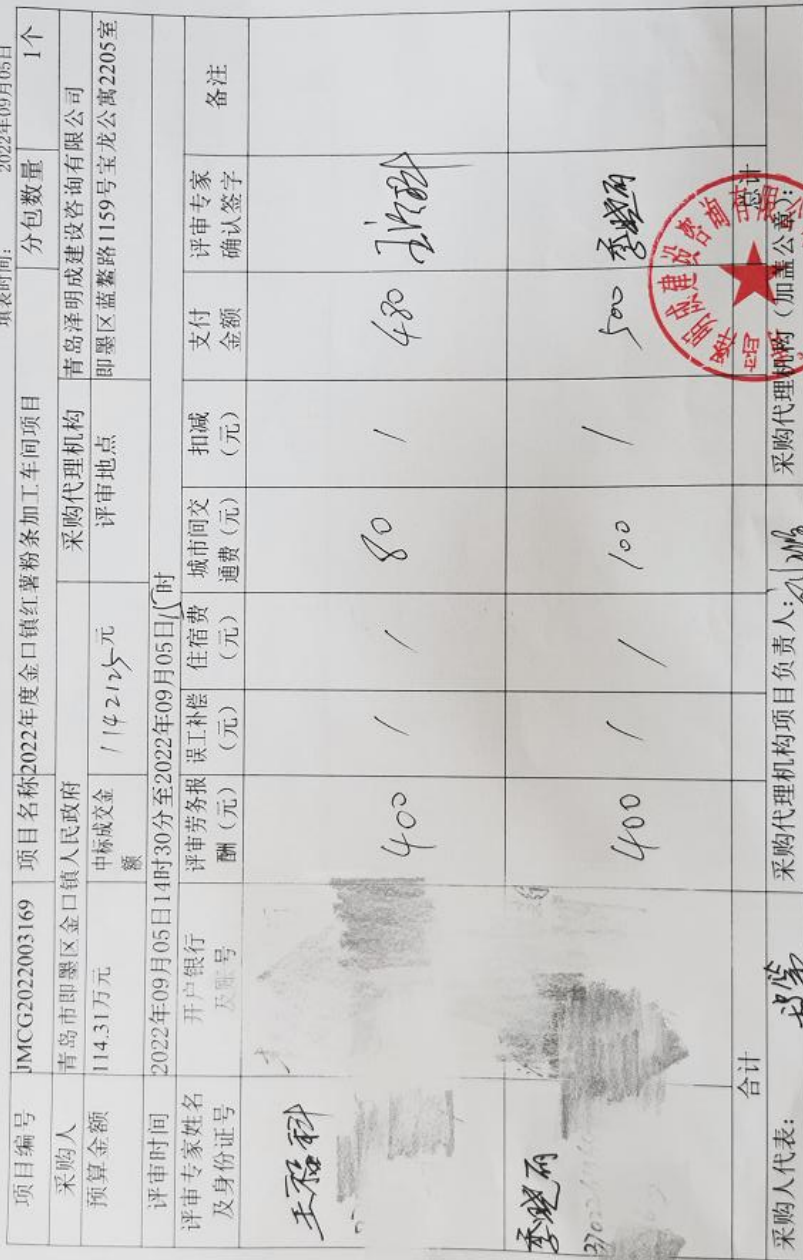 填表时间: 2022年09月05日
项目编号 JMCG2022003169 项目名称 2022年度金口镇红薯粉条加工车间项目 分包数量 1个
采购人 青岛市即墨区金口镇人民政府 采购代理机构 青岛泽明成建设咨询有限公司
预算金额 114.31万元 中标成交金额 1142125元 评审地点 即墨区蓝鳌路1159号宝龙公寓2205室
评审时间 2022年09月05日14时30分至2022年09月05日15时
评审专家姓名及身份证号 开户银行及账号 评审劳务报酬（元） 误工补偿（元） 住宿费（元） 城市间交通费（元） 扣减（元） 支付金额 评审专家确认签字 备注
400 / / 80 / 480
季晓丽 400 / / 100 / 500 季晓丽
合计 总计
采购人代表: 采购代理机构项目负责人: 采购代理机构（加盖公章）: